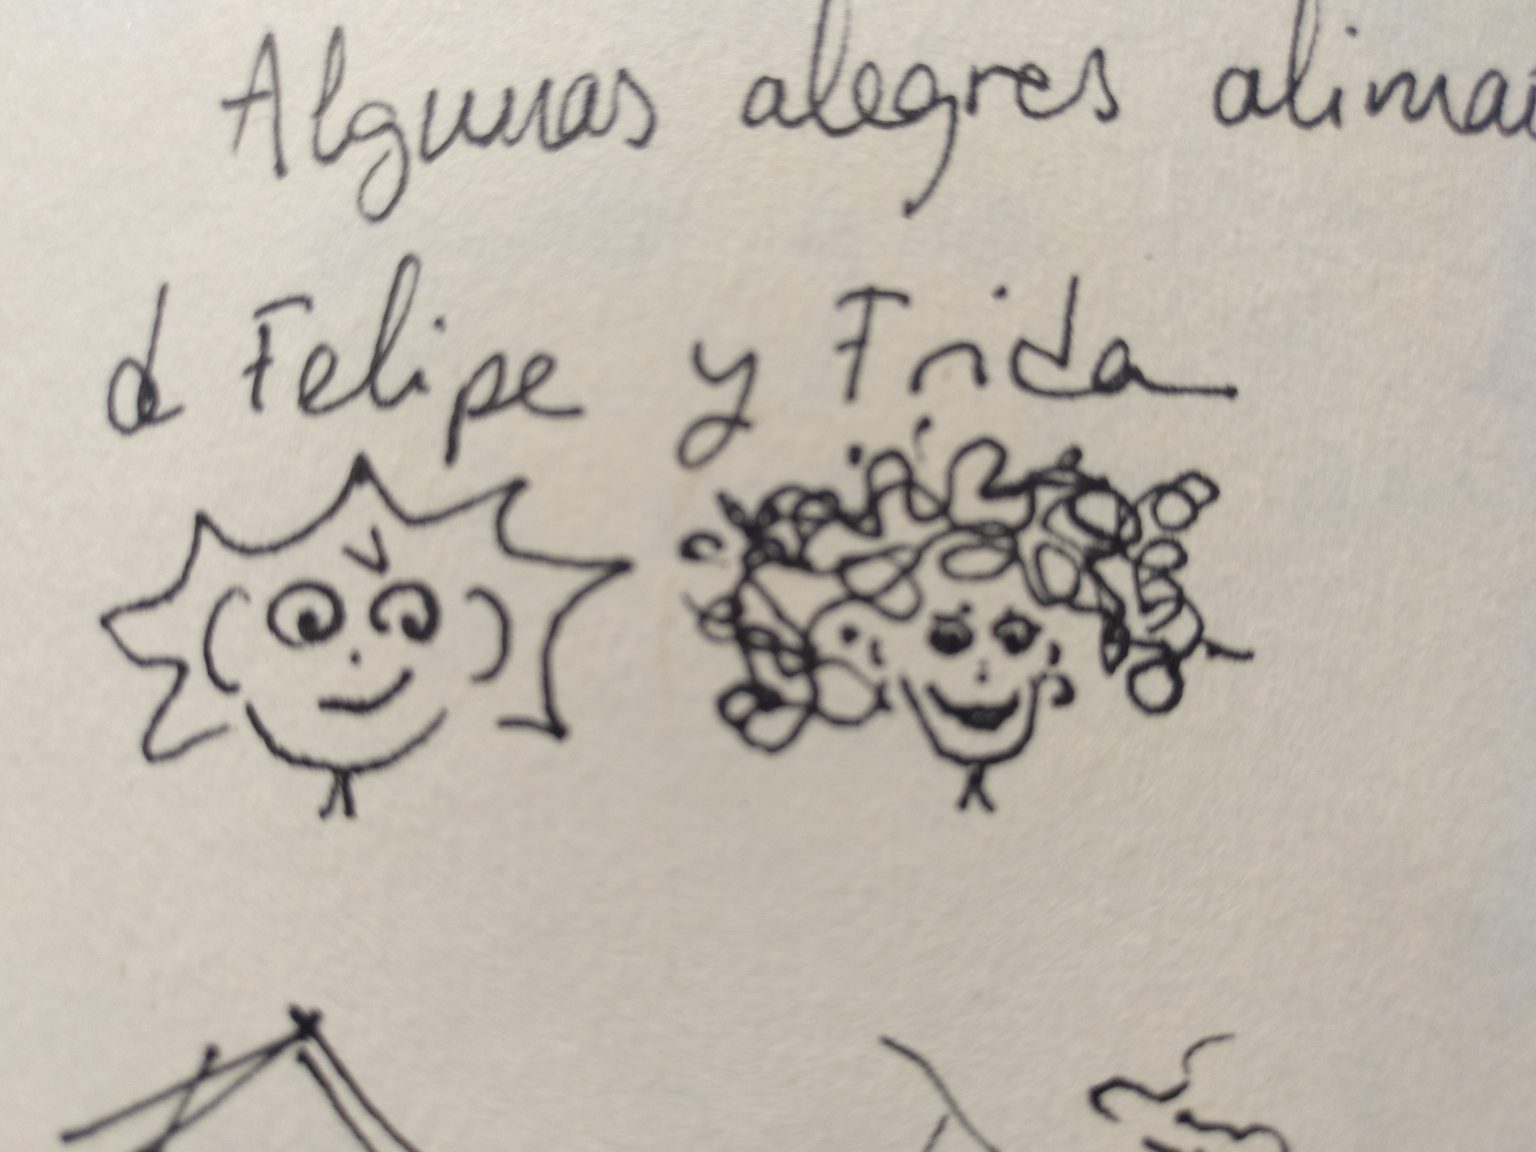 Algunas alegres
d Felipe y Frida